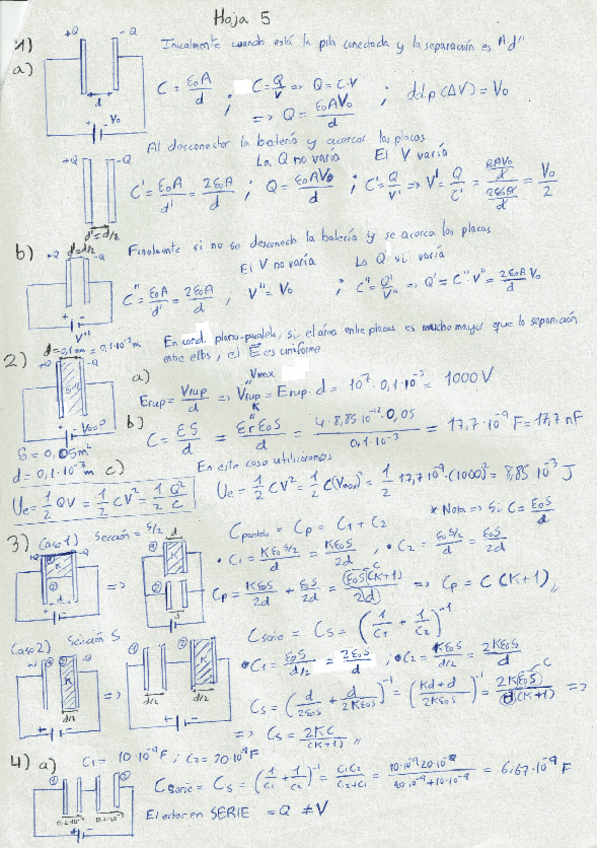 Hoja 5
1)
a)
+Q -Q
d
V₀
Inicialmente cuando está la pila conectada y la separación es "d"
C = ε₀A/d ; C = Q/V => Q = C·V ; d.d.p (ΔV) = V₀
=> Q = ε₀AV₀/d
Al desconectar la batería y acercar las placas
La Q no varía El V varía
+Q -Q
d' = d/2
C' = ε₀A/d' = 2ε₀A/d ; Q = ε₀AV₀/d ; C' = Q/V' => V' = Q/C' = (ε₀AV₀/d)/(2ε₀A/d) = V₀/2
b)
d' = d/2
+Q -Q
V''
Finalmente si no se desconecta la batería y se acerca las placas
El V no varía La Q si varía
C'' = ε₀A/d' = 2ε₀A/d , V'' = V₀ ; C'' = Q'/V'' => Q' = C''V'' = 2ε₀A/d V₀
2)
d = 0,1mm = 0,1·10⁻³m
+Q -Q
V₀=?
S = 0,05m²
d = 0,1·10⁻³m
En cond. plano-paralelo, si el área entre placas es mucho mayor que la separación
entre ellas, el E es uniforme
a)
Vmax
Erup = Vrup/d => Vrup = Erup·d = 10⁷·0,1·10⁻³ = 1000V
b)
K
C = εS/d = εrε₀S/d = 4·8,85·10⁻¹²·0,05/0,1·10⁻³ = 17,7·10⁻⁹F = 17,7 nF
c)
En este caso utilizamos
Ue = 1/2 QV = 1/2 CV² = 1/2 Q²/C
Ue = 1/2 CV² = 1/2 C(Vmax)² = 1/2 17,7·10⁻⁹·(1000)² = 8,85·10⁻³ J
* Nota => Si C = ε₀S/d
3)
Caso 1) Sección = S/2
K
d
+ -
=>
Cparalelo = Cp = C₁ + C₂
• C₁ = Kε₀S/2/d = Kε₀S/2d , • C₂ = ε₀S/2/d = ε₀S/2d
Cp = Kε₀S/2d + ε₀S/2d = ε₀S(K+1)/2d => Cp = C(K+1)
Caso 2) Sección S
K
d/2
=>
d/2 d/2
Cserie = Cs = (1/C₁ + 1/C₂)⁻¹
• C₁ = ε₀S/d/2 = 2ε₀S/d ; • C₂ = Kε₀S/d/2 = 2Kε₀S/d
Cs = (d/2ε₀S + d/2Kε₀S)⁻¹ = (Kd+d/2Kε₀S)⁻¹ = 2Kε₀S/d(K+1) =>
=> Cs = 2KC/(K+1)
4) a)
C₁ = 10·10⁻⁹F ; C₂ = 20·10⁻⁹F
Cserie = Cs = (1/C₁ + 1/C₂)⁻¹ = C₁C₂/C₂+C₁ = 10·10⁻⁹20·10⁻⁹/20·10⁻⁹+10·10⁻⁹ = 6,67·10⁻⁹ F
en SERIE = Q ≠ V